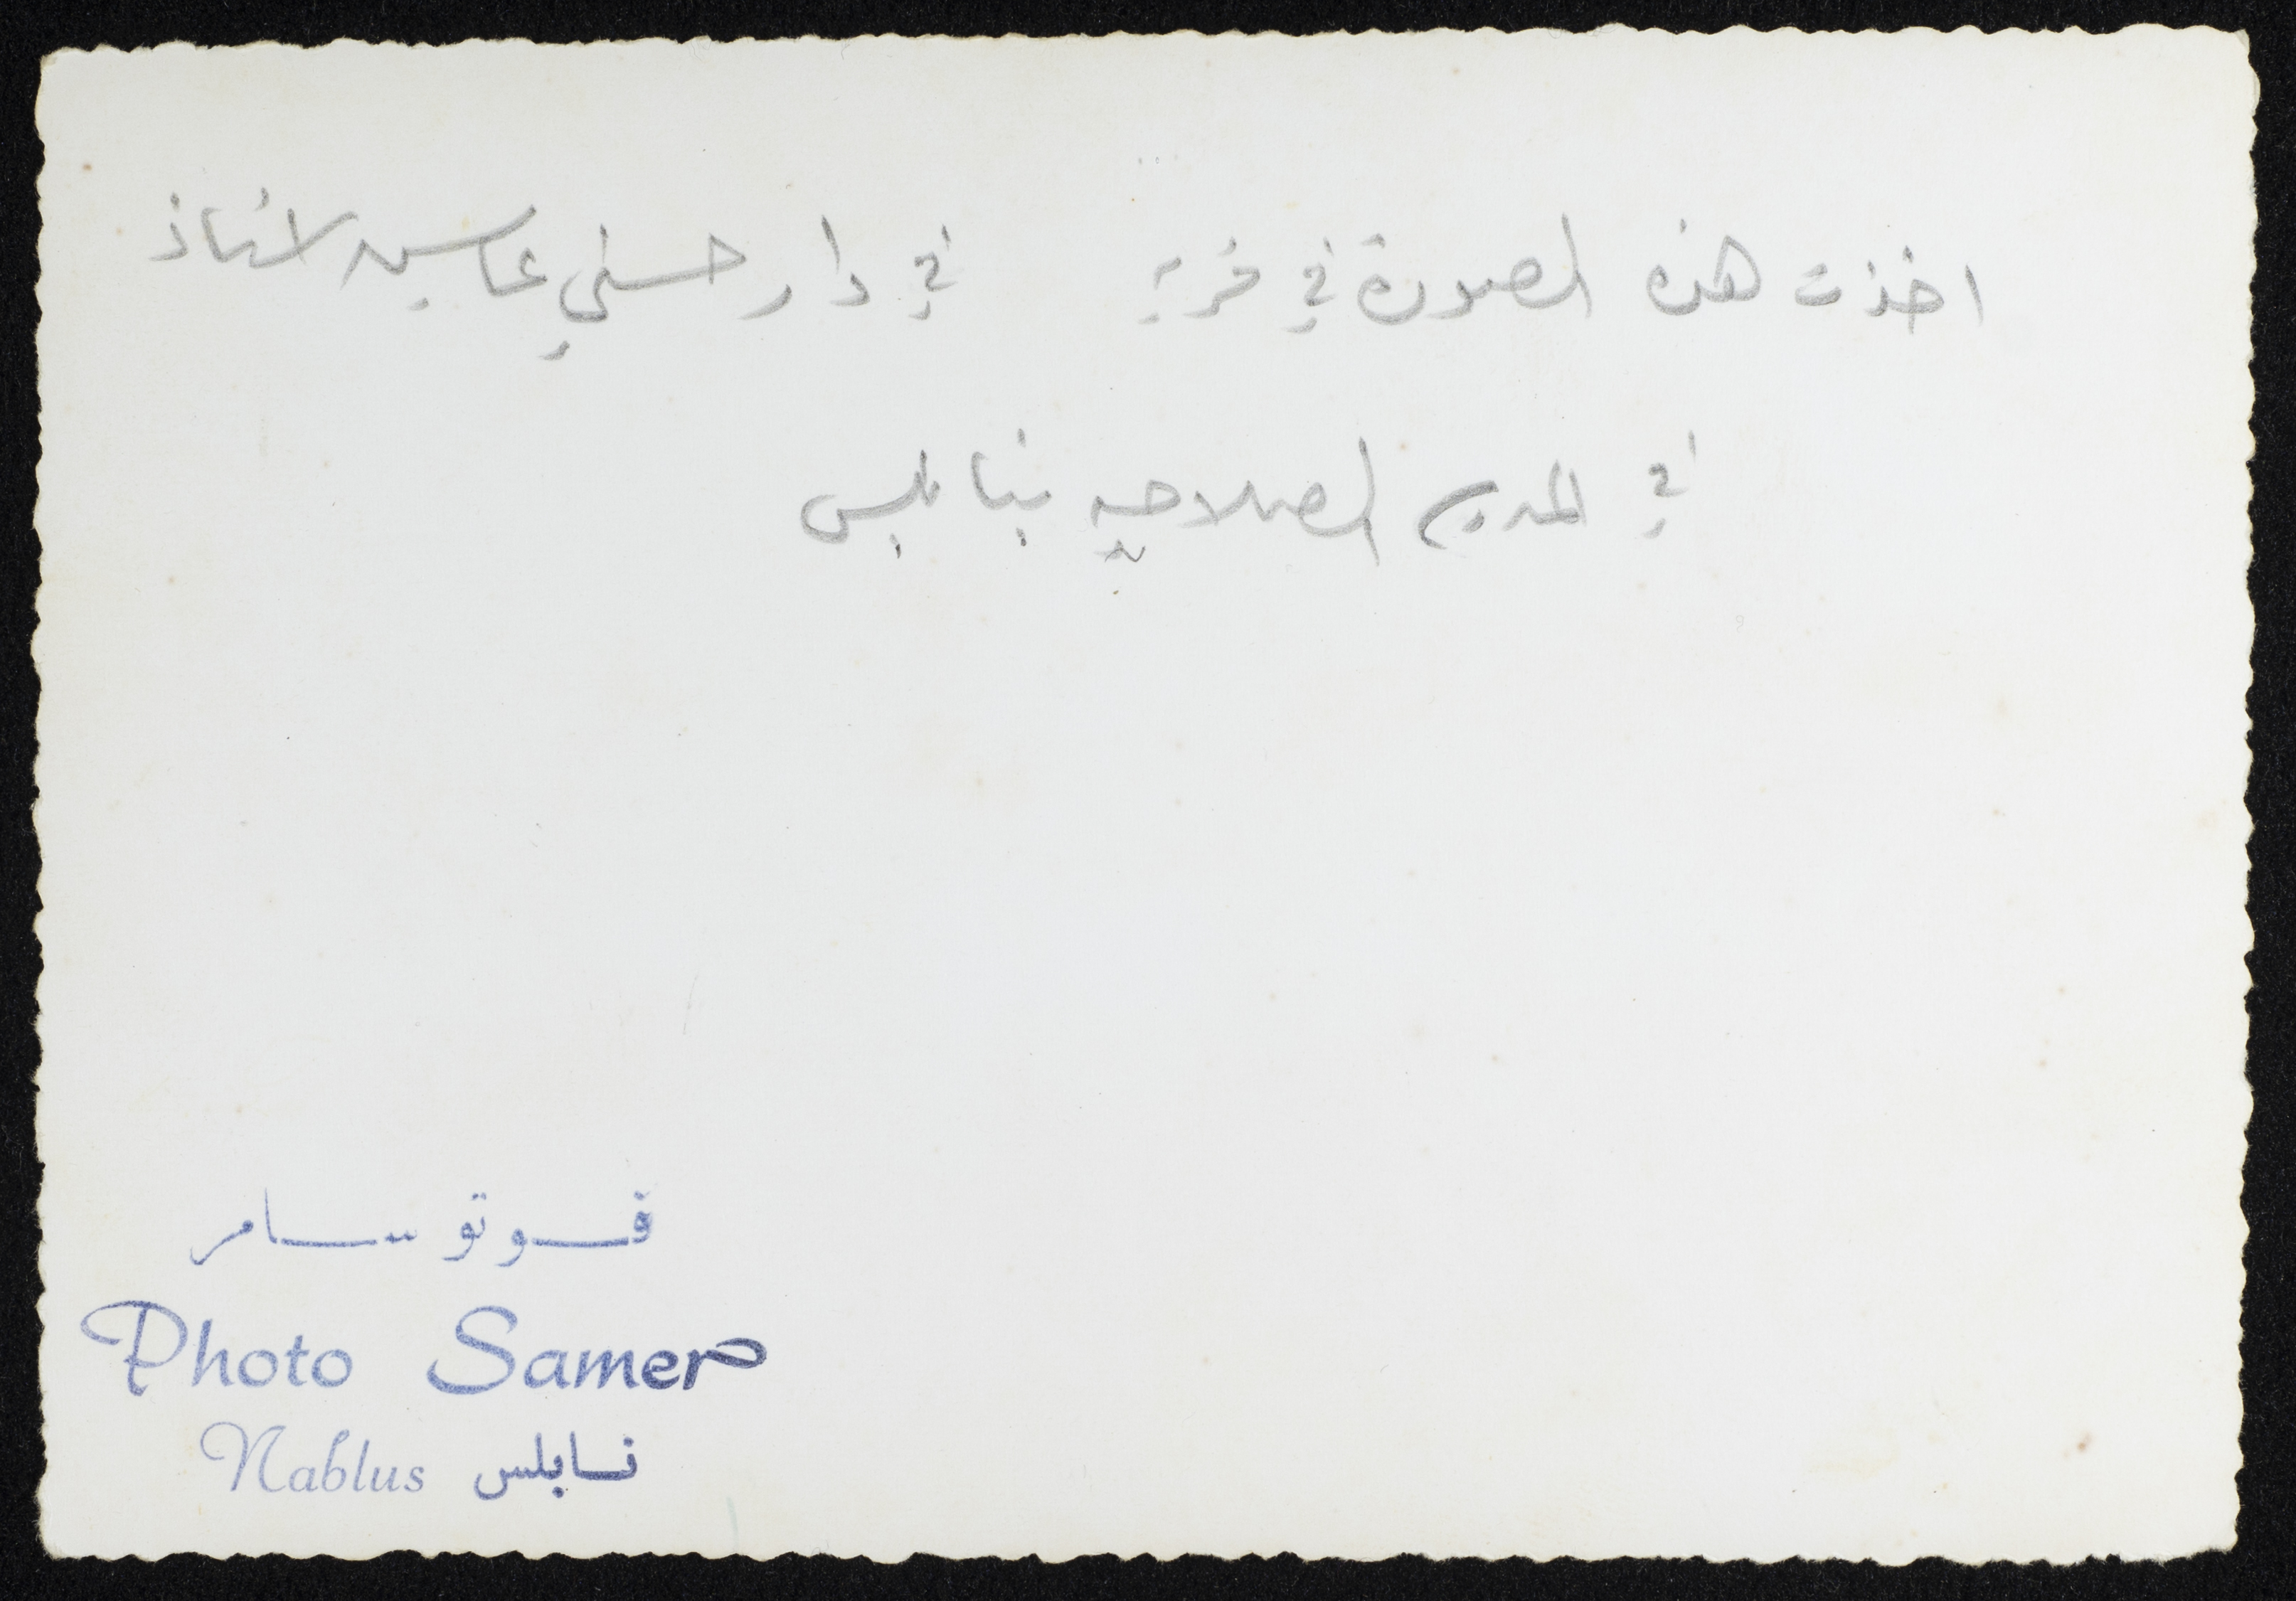 اخذت هذه الصورة في قرية في دار حسني الاستاذ
في المدرسه الصلاحيه بنابلس
فوتو سامر
Photo Samer
Nablus نابلس